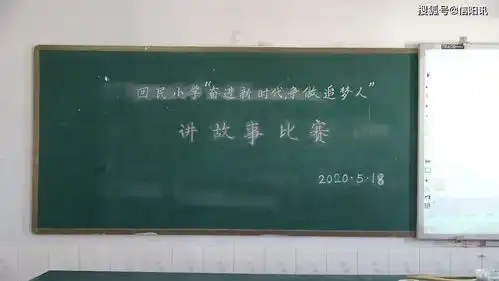 搜狐号@信阳讯
回民小学“奋进新时代,争做追梦人”
讲故事比赛
2020.5.18